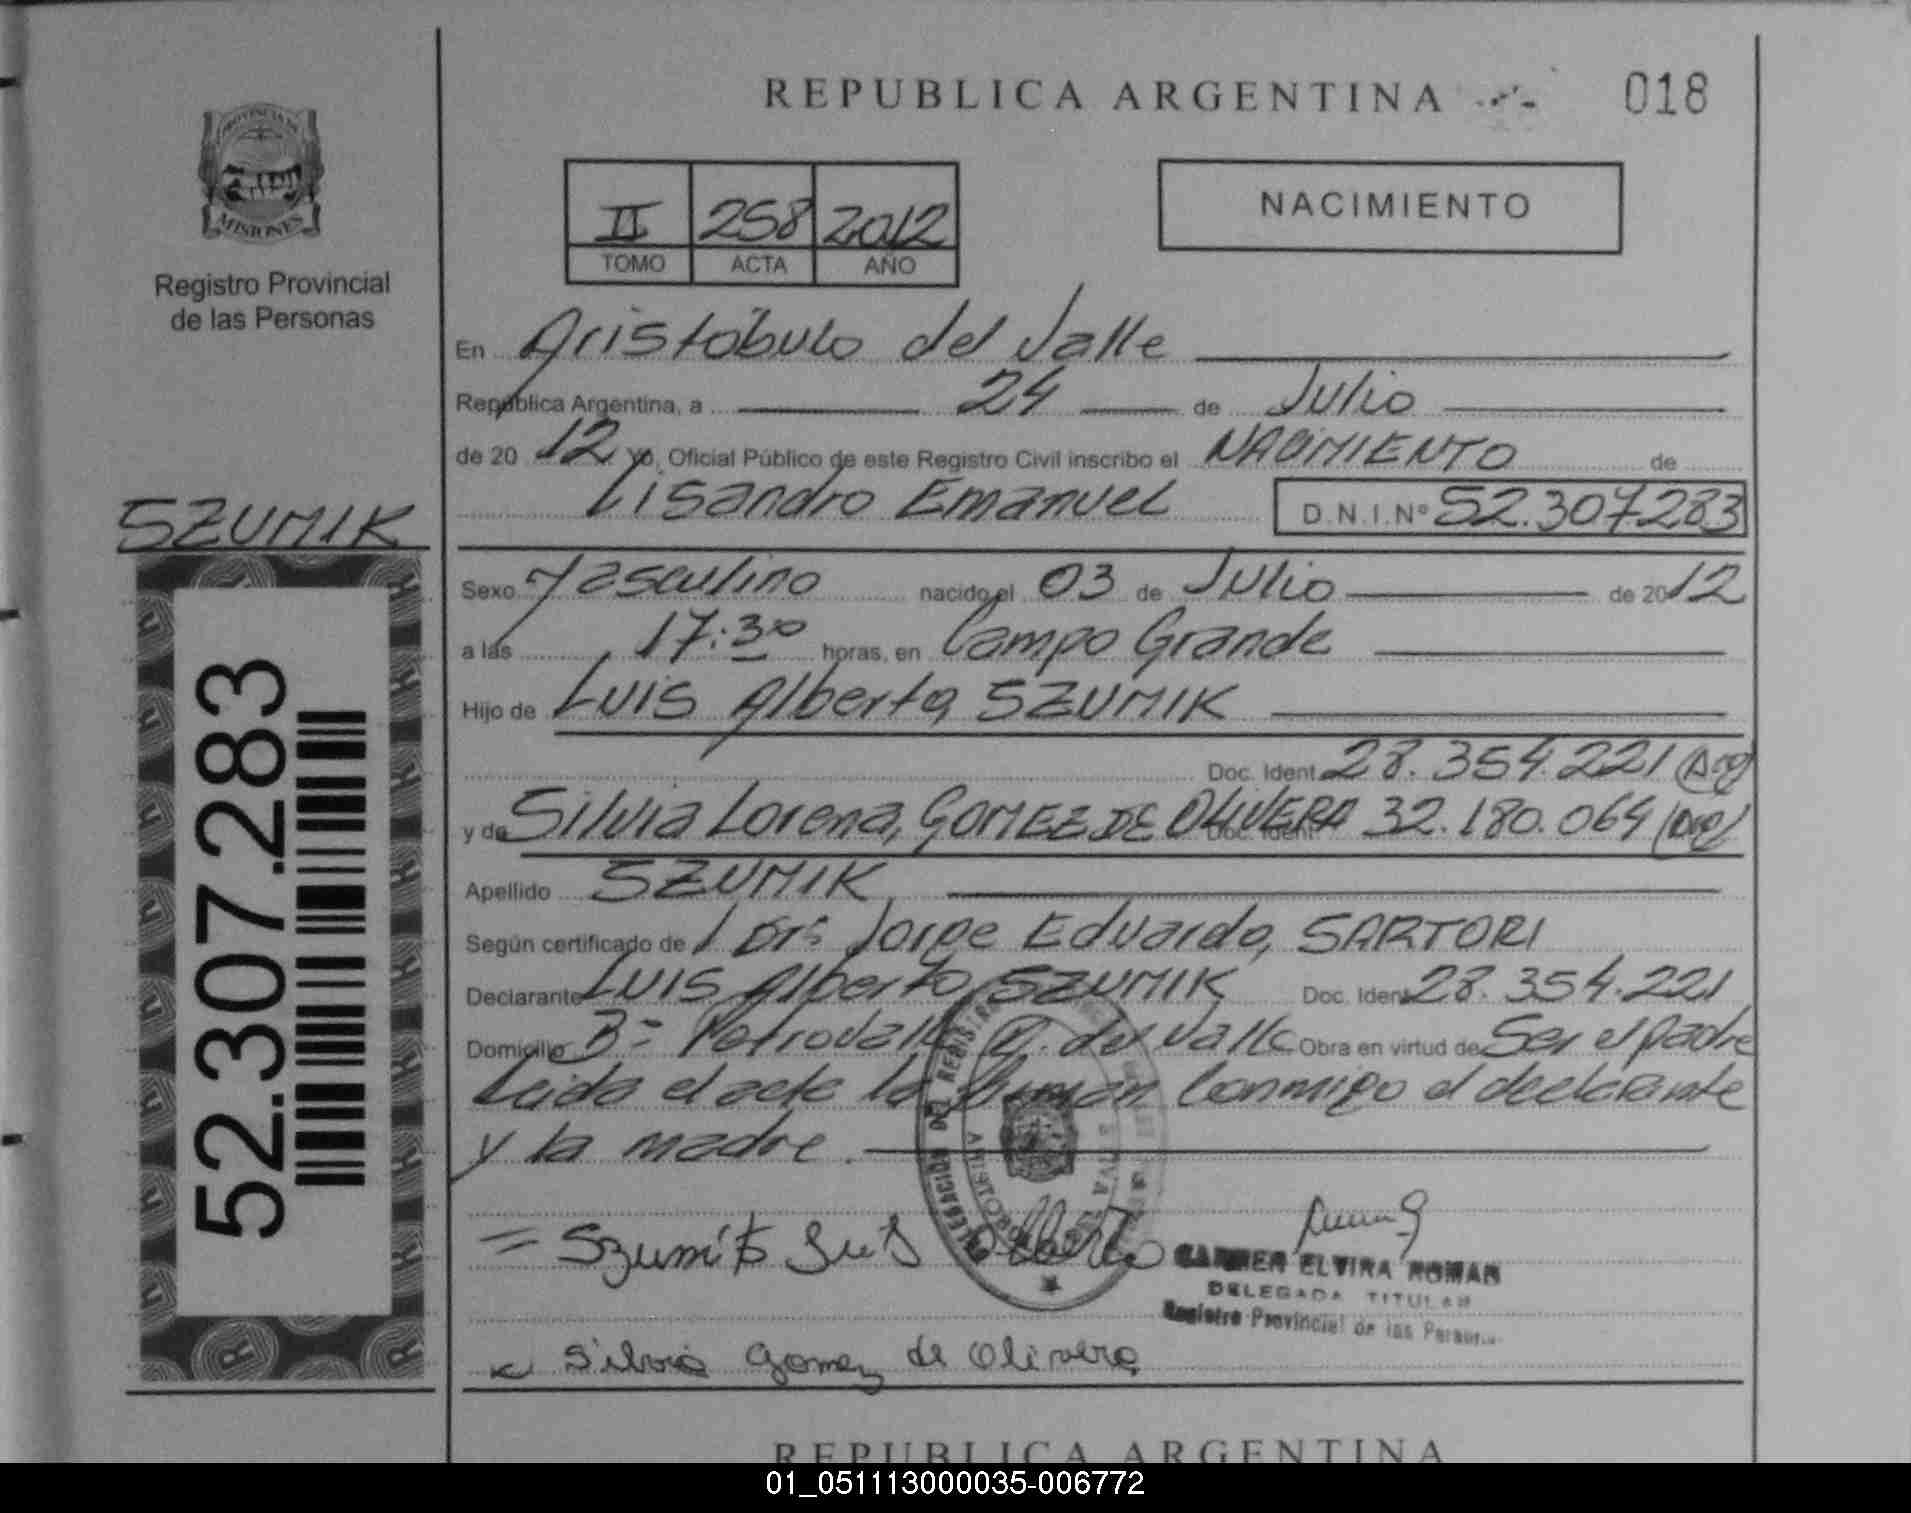 REPUBLICA ARGENTINA
018
PROVINCIA DE
MISIONES
Registro Provincial
de las Personas
II 258 2012
TOMO ACTA AÑO
NACIMIENTO
En Aristóbulo del Valle
República Argentina, a 24 de Julio
de 20 12 Yo, Oficial Público de este Registro Civil inscribo el NACIMIENTO de
Lisandro Emanuel D.N.I.Nº 52.307.283
SZUMIK
52.307.283
Sexo Masculino nacido el 03 de Julio de 20 12
a las 17:30 horas, en Campo Grande
Hijo de Luis Alberto, SZUMIK
Doc. Ident. 28.354.221 (Arg)
y de Silvia Lorena, GOMEZ DE OLIVERA Doc. Ident. 32.180.064 (Arg)
Apellido SZUMIK
Según certificado de Dr. Jorge Eduardo, SARTORI
Declarante Luis Alberto SZUMIK Doc. Ident. 28.354.221
Domicilio Bº A. del Valle Obra en virtud de Ser el padre
Leida el acta la firman conmigo el declarante
y la madre.
DELEGACION DEL REGISTRO
Szumik Luis Alberto
CARMEN ELVIRA ROMAN
DELEGADA TITULAR
Registro Provincial de las Personas
Silvia Gomez de Olivera
REPUBLICA ARGENTINA
01_051113000035-006772